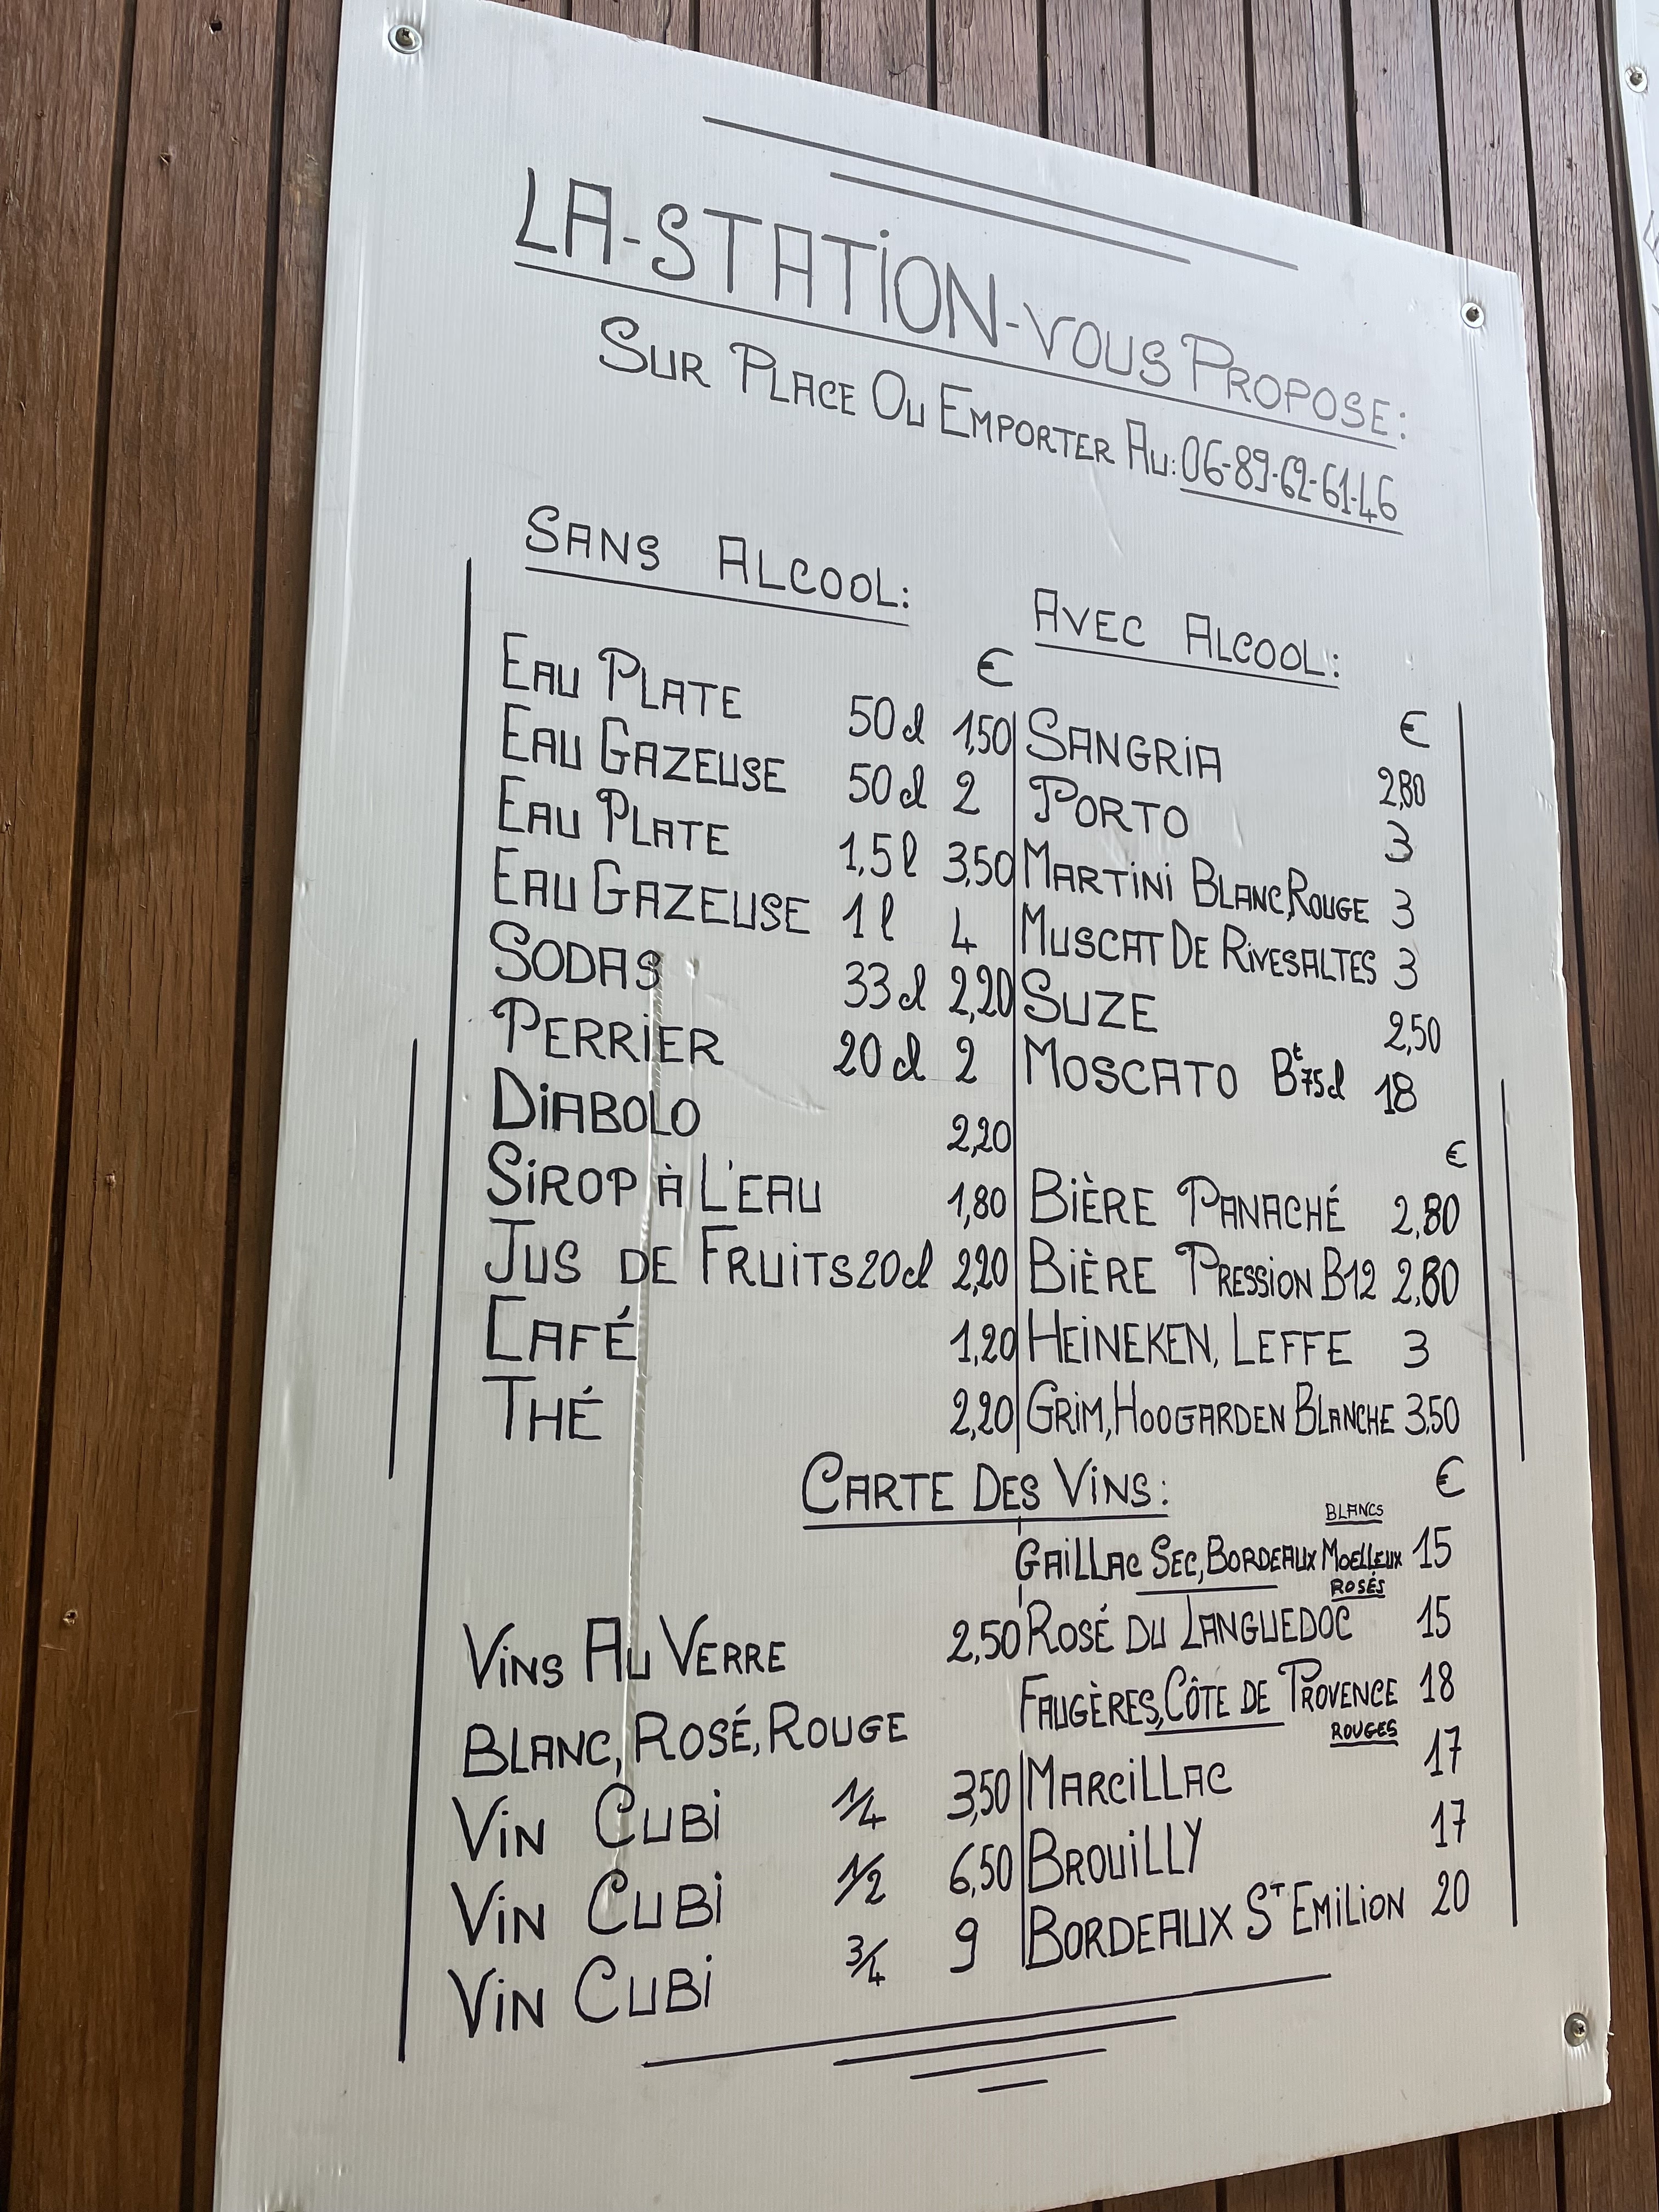 LA-STATiON-VOUS PROPOSE:
SUR PLACE OU EMPORTER AU: 06-89-62-61-46
SANS ALCOOL:
€
EAU PLATE 50cl 1,50
EAU GAZEUSE 50cl 2
EAU PLATE 1,5l 3,50
EAU GAZEUSE 1l 4
SODAS 33cl 2,20
PERRiER 20cl 2
DiABOLO 2,20
SiROP À L'EAU 1,80
JUS DE FRUiTS 20cl 2,20
CAFÉ 1,20
THÉ 2,20
AVEC ALCOOL:
€
SANGRiA 2,80
PORTO 3
MARTiNi BLANC,ROUGE 3
MUSCAT DE RiVESALTES 3
SUZE 2,50
MOSCATO Bt 75cl 18
€
BiÈRE PANACHÉ 2,80
BiÈRE PRESSiON B12 2,80
HEiNEKEN, LEFFE 3
GRiM, HOOGARDEN BLANCHE 3,50
CARTE DES ViNS:
€
ViNS AU VERRE 2,50
BLANC, ROSÉ, ROUGE
ViN CUBi 1/4 3,50
ViN CUBi 1/2 6,50
ViN CUBi 3/4 9
BLANCS
GAiLLAC SEC, BORDEAUX MOELLEUX 15
ROSÉS
ROSÉ DU LANGUEDOC 15
FAUGÈRES, CÔTE DE PROVENCE 18
ROUGES
MARCiLLAC 17
BROUiLLY 17
BORDEAUX ST EMiLiON 20